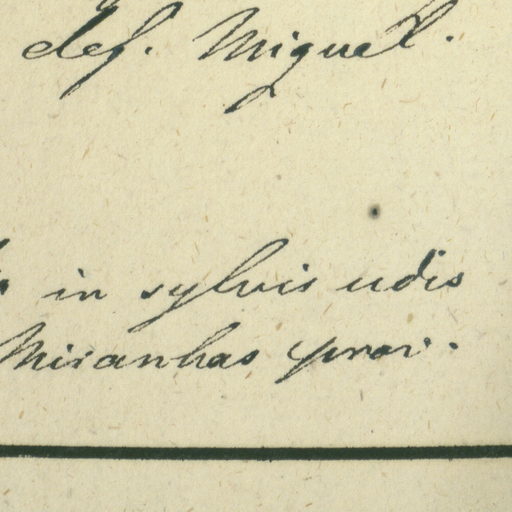 def. Miguel.
in sylvis udis
Miranhas prov.